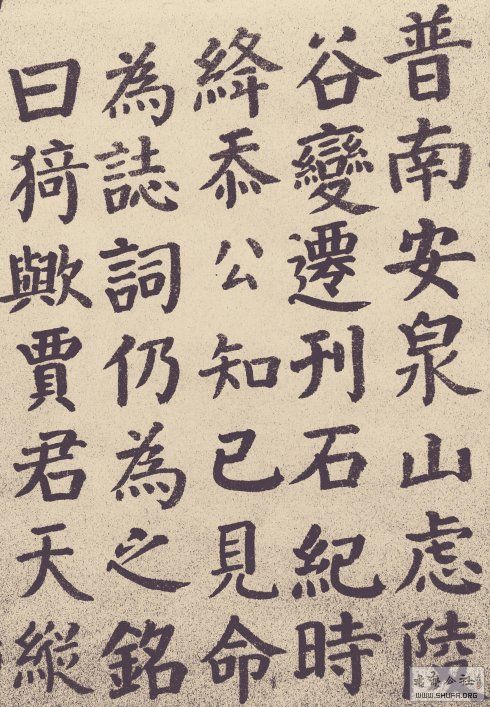 普南安泉山慮陸
谷變遷刊石紀時
絳忝公知已見命
為誌詞仍為之銘
曰猗歟賈君天縱
WWW.SHUFA.ORG